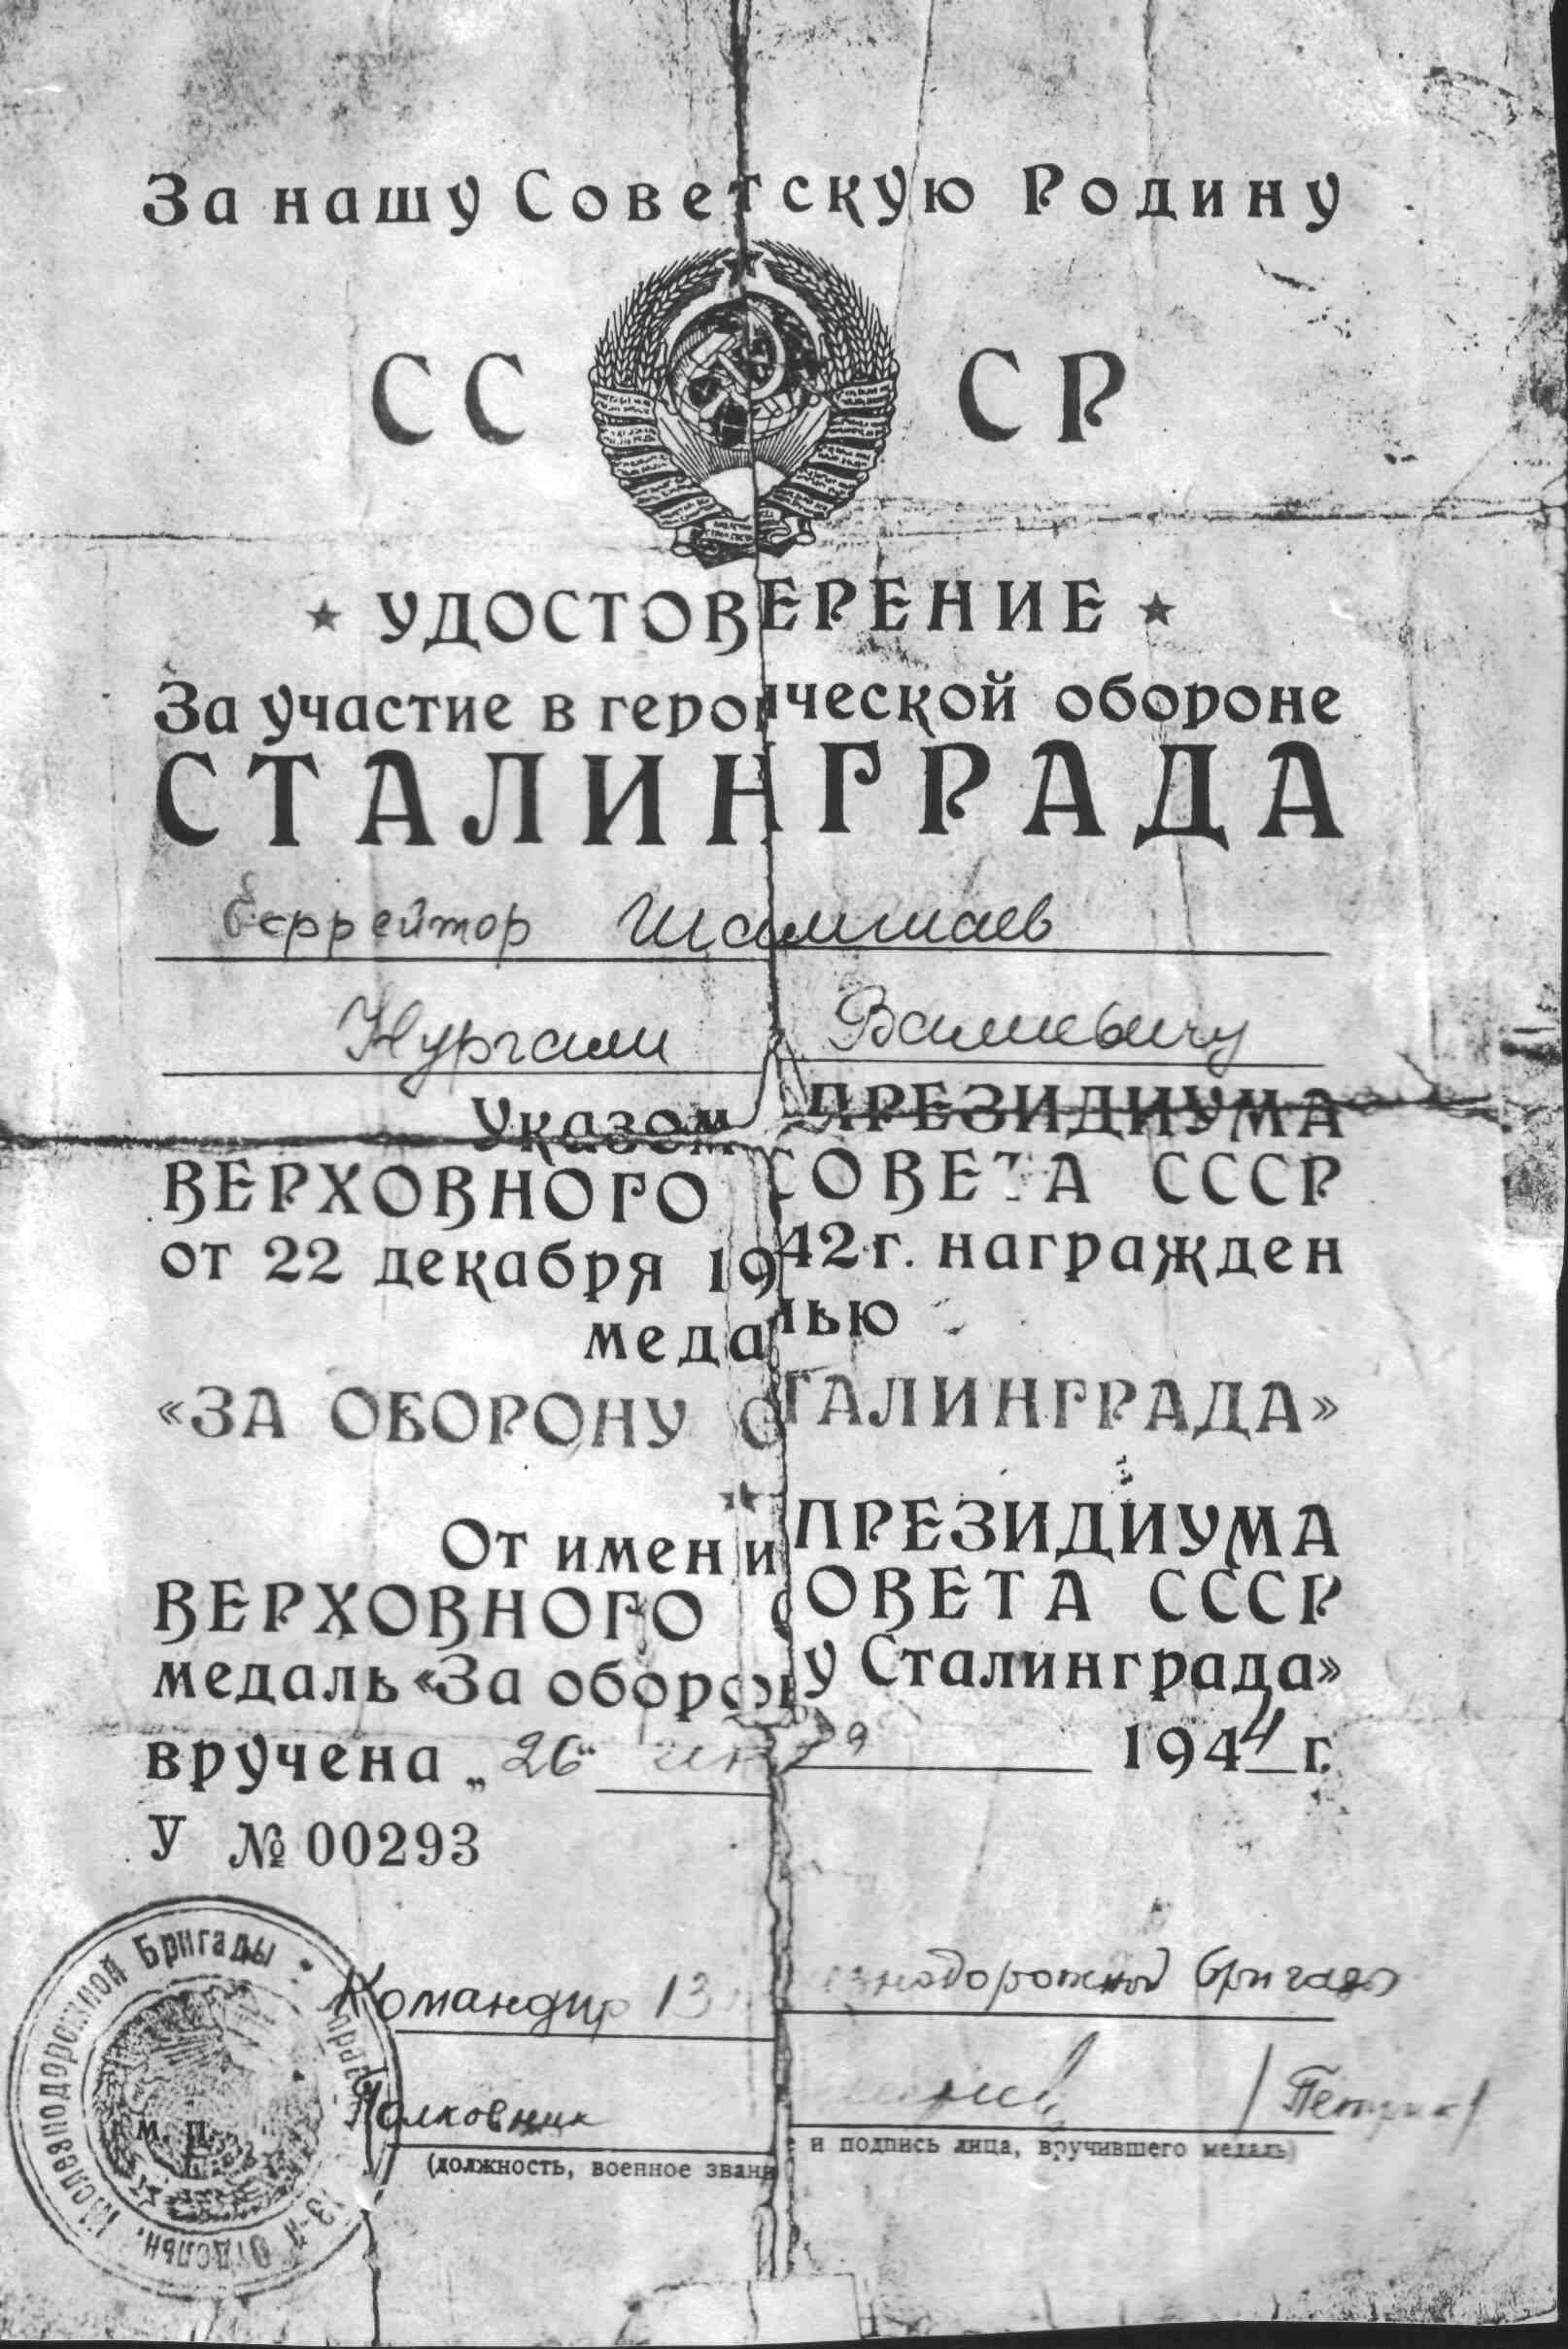 За нашу Советскую Родину
СССР
УДОСТОВЕРЕНИЕ
За участие в героической обороне
СТАЛИНГРАДА
Еррейтор Шамшаев
Нургали Валиевичу
Указом ПРЕЗИДИУМА
ВЕРХОВНОГО СОВЕТА СССР
от 22 декабря 1942 г. награжден
медалью
«ЗА ОБОРОНУ СТАЛИНГРАДА»
От имени ПРЕЗИДИУМА
ВЕРХОВНОГО СОВЕТА СССР
медаль «За оборону Сталинграда»
вручена „26“ 1944 г.
У № 00293
Командир 13 железнодорожной бригады
Полковник
(должность, военное звание и подпись лица, вручившего медаль)
М. П.
13-я Отдельн. Железнодорожной Бригады